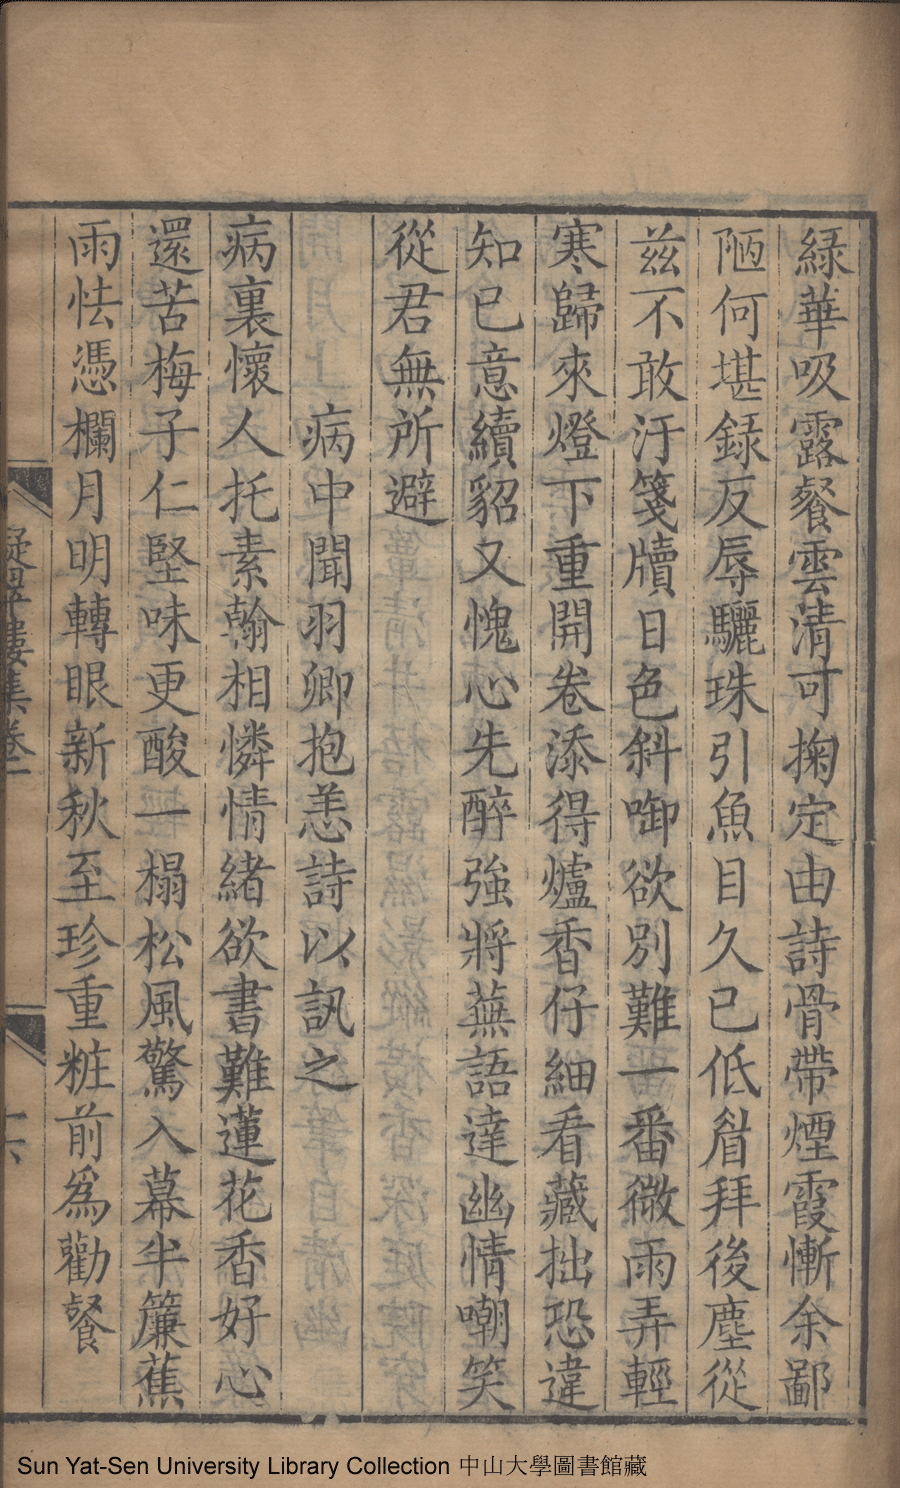 綠華吸露餐雲清可掬定由詩骨帶煙霞慚余鄙
陋何堪錄反辱驪珠引魚目久已低眉拜後塵從
茲不敢汙箋牘日色斜啣欲別難一番微雨弄輕
寒歸來燈下重開卷添得爐香仔細看藏拙恐違
知已意續貂又愧心先醉強將蕪語達幽情嘲笑
從君無所避
病中聞羽卿抱恙詩以訊之
病裏懷人托素翰相憐情緒欲書難蓮花香好心
還苦梅子仁堅味更酸一榻松風驚入幕半簾蕉
雨怯憑欄月明轉眼新秋至珍重粧前為勸餐
凝翠樓集卷一
十六
Sun Yat-Sen University Library Collection 中山大學圖書館藏